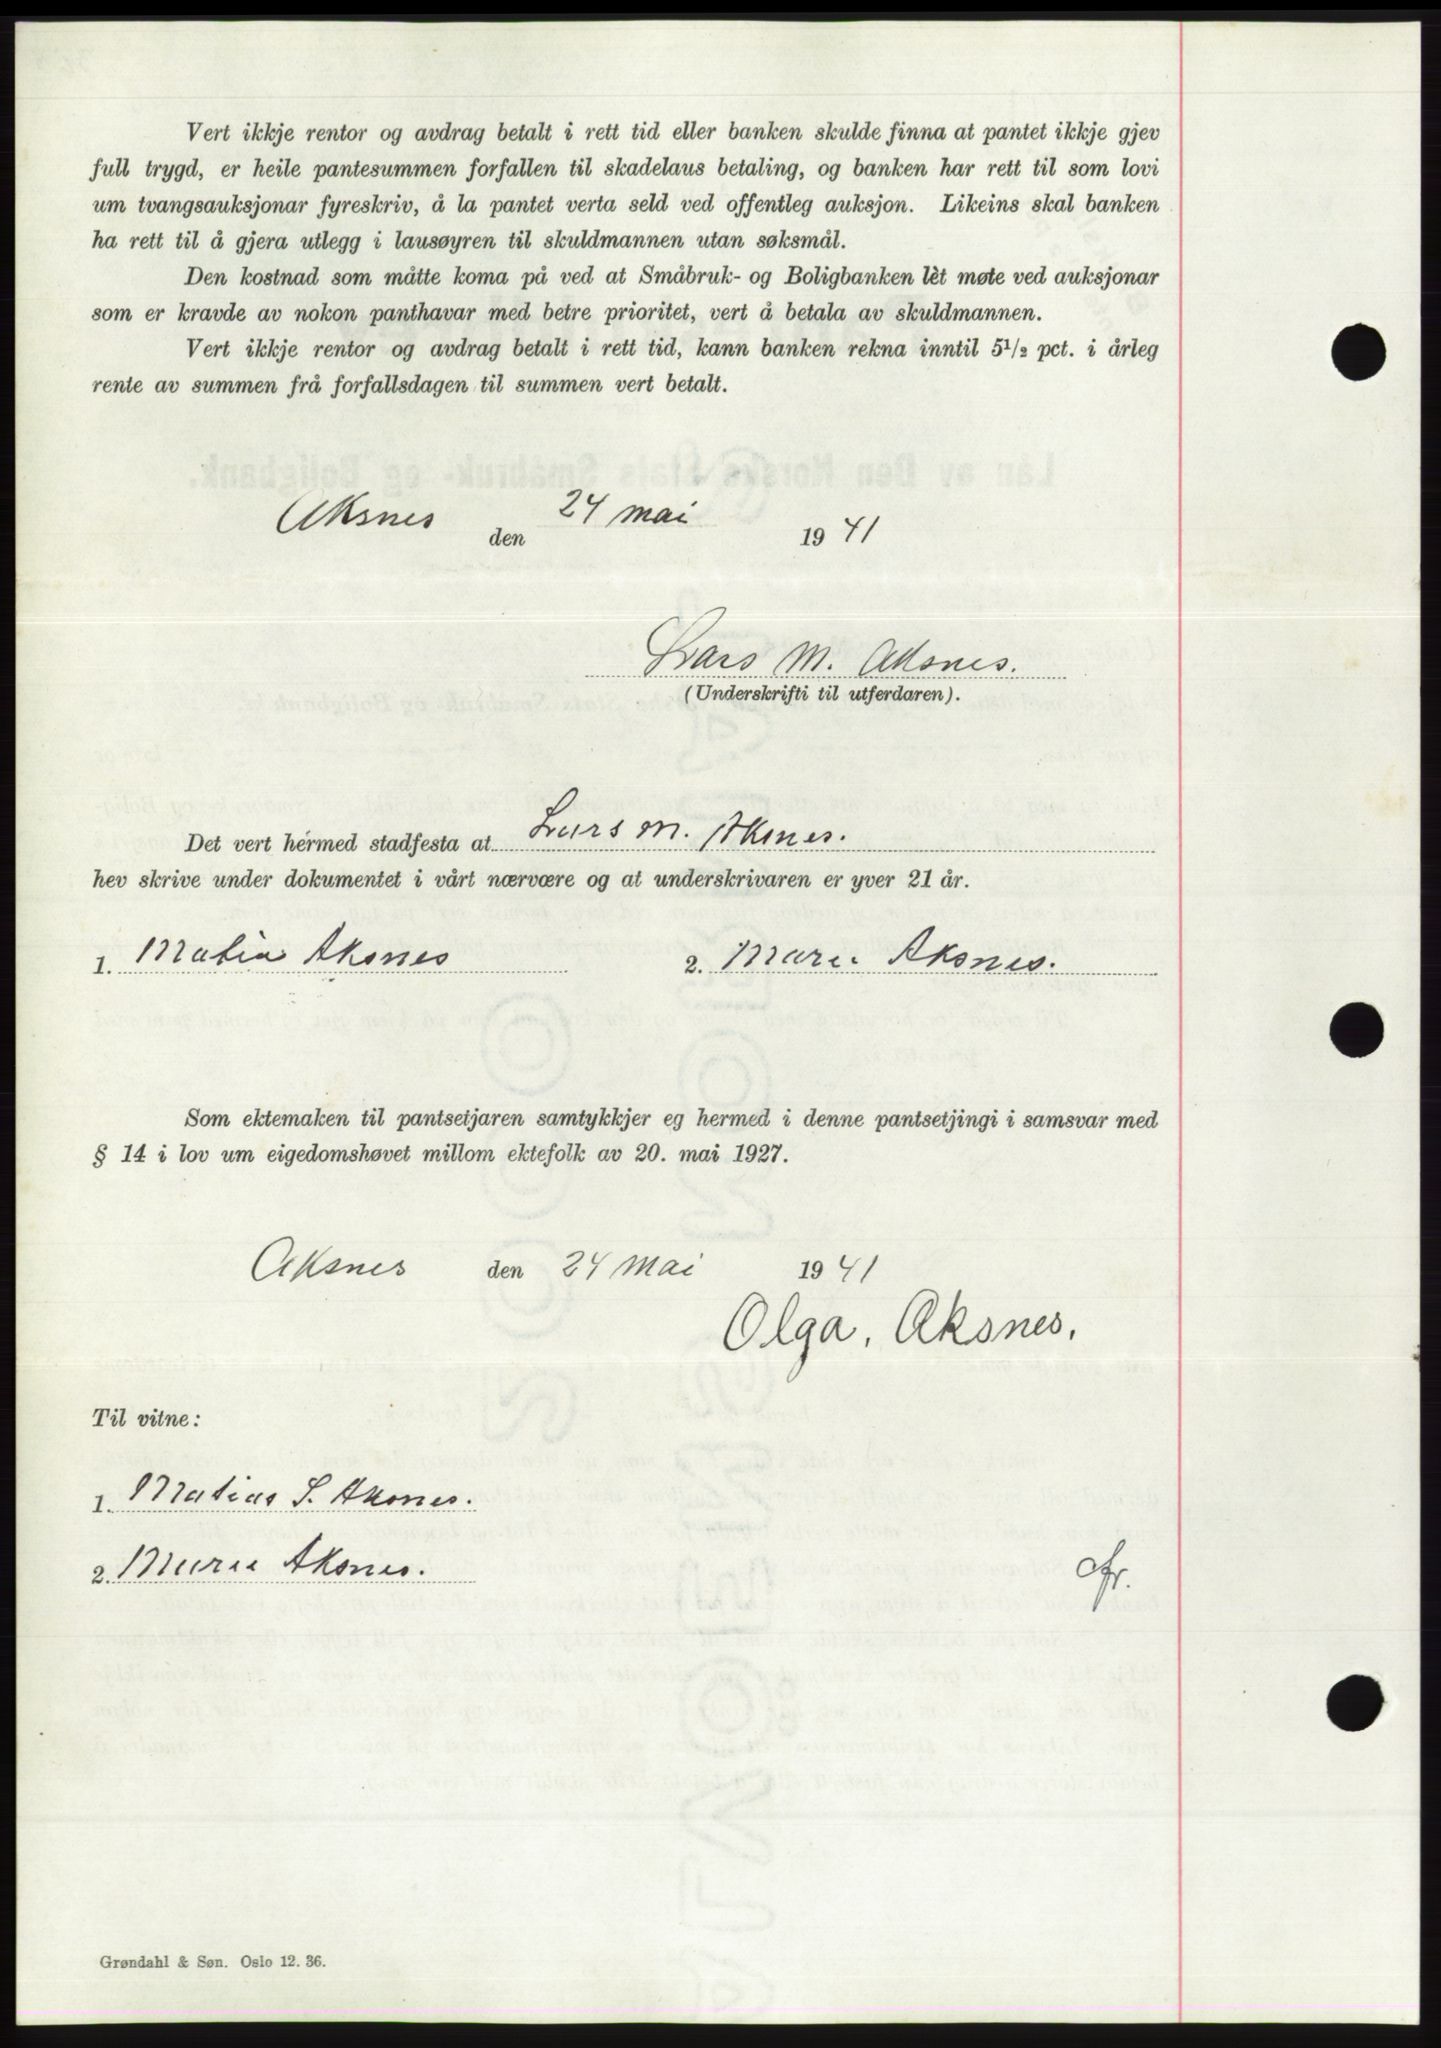 Vert ikkje rentor og avdrag betalt i rett tid eller banken skulde finna at pantet ikkje gjev
full trygd, er heile pantesummen forfallen til skadelaus betaling, og banken har rett til som lovi
um tvangsauksjonar fyreskriv, å la pantet verta seld ved offentleg auksjon. Likeins skal banken
ha rett til å gjera utlegg i lausøyren til skuldmannen utan søksmål.
Den kostnad som måtte koma på ved at Småbruk- og Boligbanken lèt møte ved auksjonar
som er kravde av nokon panthavar med betre prioritet, vert å betala av skuldmannen.
Vert ikkje rentor og avdrag betalt i rett tid, kann banken rekna inntil 5½ pct. i årleg
rente av summen frå forfallsdagen til summen vert betalt.
Aksnes den 24 mai 1941
Lars M. Aksnes.
(Underskrifti til utferdaren).
Det vert hermed stadfesta at Lars M. Aksnes.
hev skrive under dokumentet i vårt nærvære og at underskrivaren er yver 21 år.
1. Aksnes 2. Marie Aksnes.
Som ektemaken til pantsetjaren samtykkjer eg hermed i denne pantsetjingi i samsvar med
§ 14 i lov um eigedomshøvet millom ektefolk av 20. mai 1927.
Aksnes den 24 mai 1941
Olga, Aksnes,
Til vitne:
1. Matias S. Aksnes.
2. Marie Aksnes.
Grøndahl & Søn. Oslo 12. 36.